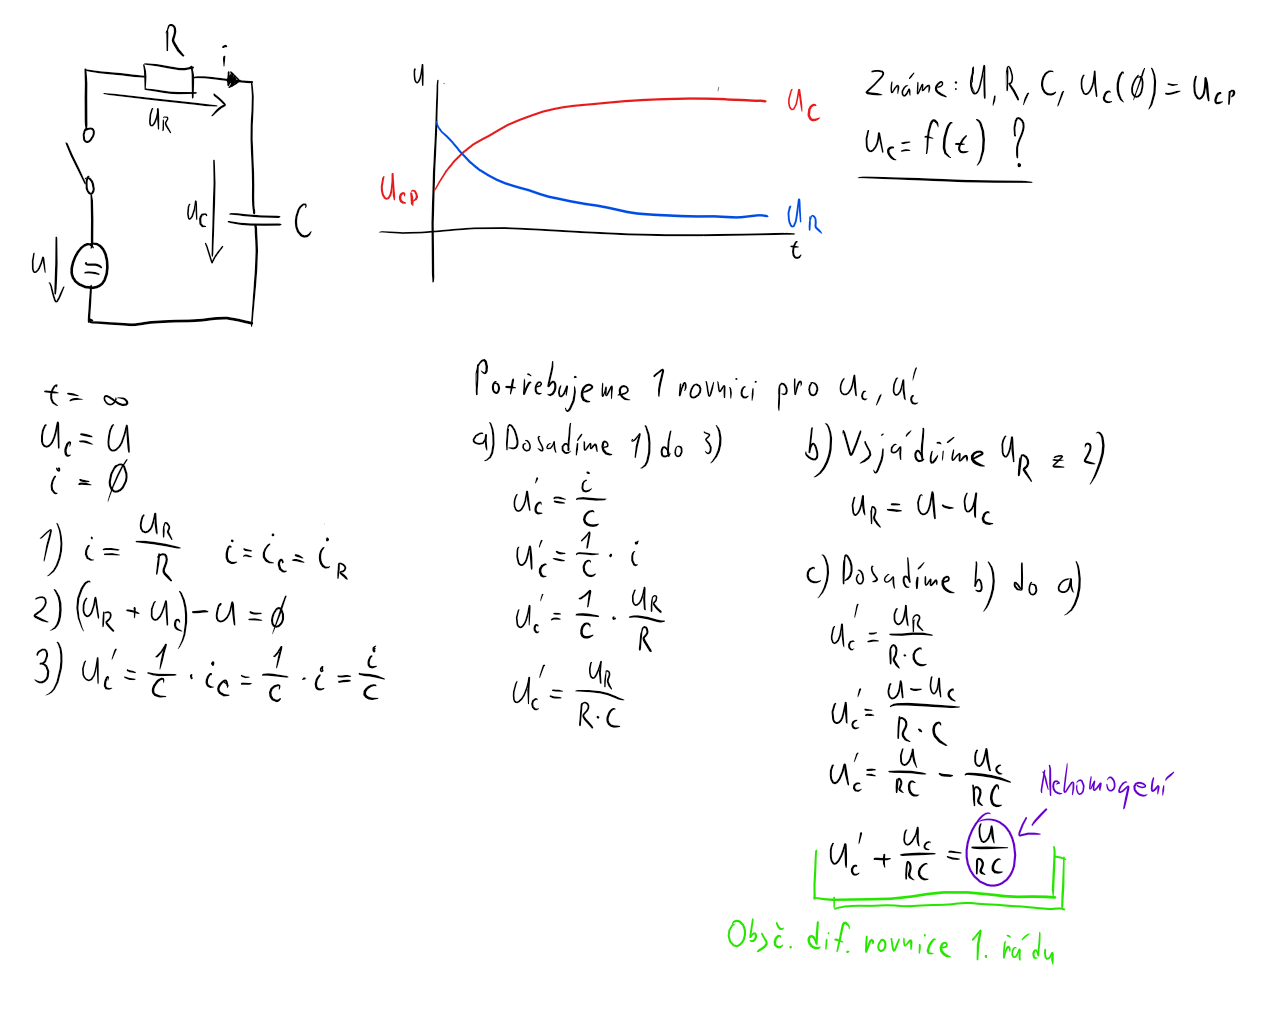 R
i
u_R
u_C
C
u
u
u_C
u_CP
u_R
t
Známe: U, R, C, u_C(∅) = u_CP
u_C = f(t) ?
t = ∞
u_C = U
i = ∅
1) i = u_R/R   i = i_C = i_R
2) (u_R + u_C) - u = ∅
3) u_C' = 1/C · i_C = 1/C · i = i/C
Potřebujeme 1 rovnici pro u_C, u_C'
a) Dosadíme 1) do 3)
u_C' = i/C
u_C' = 1/C · i
u_C' = 1/C · u_R/R
u_C' = u_R/(R·C)
b) Vyjádříme u_R z 2)
u_R = u - u_C
c) Dosadíme b) do a)
u_C' = u_R/(R·C)
u_C' = (u - u_C)/(R·C)
u_C' = u/RC - u_C/RC
Nehomogení
u_C' + u_C/RC = u/RC
Obyč. dif. rovnice 1. řádu